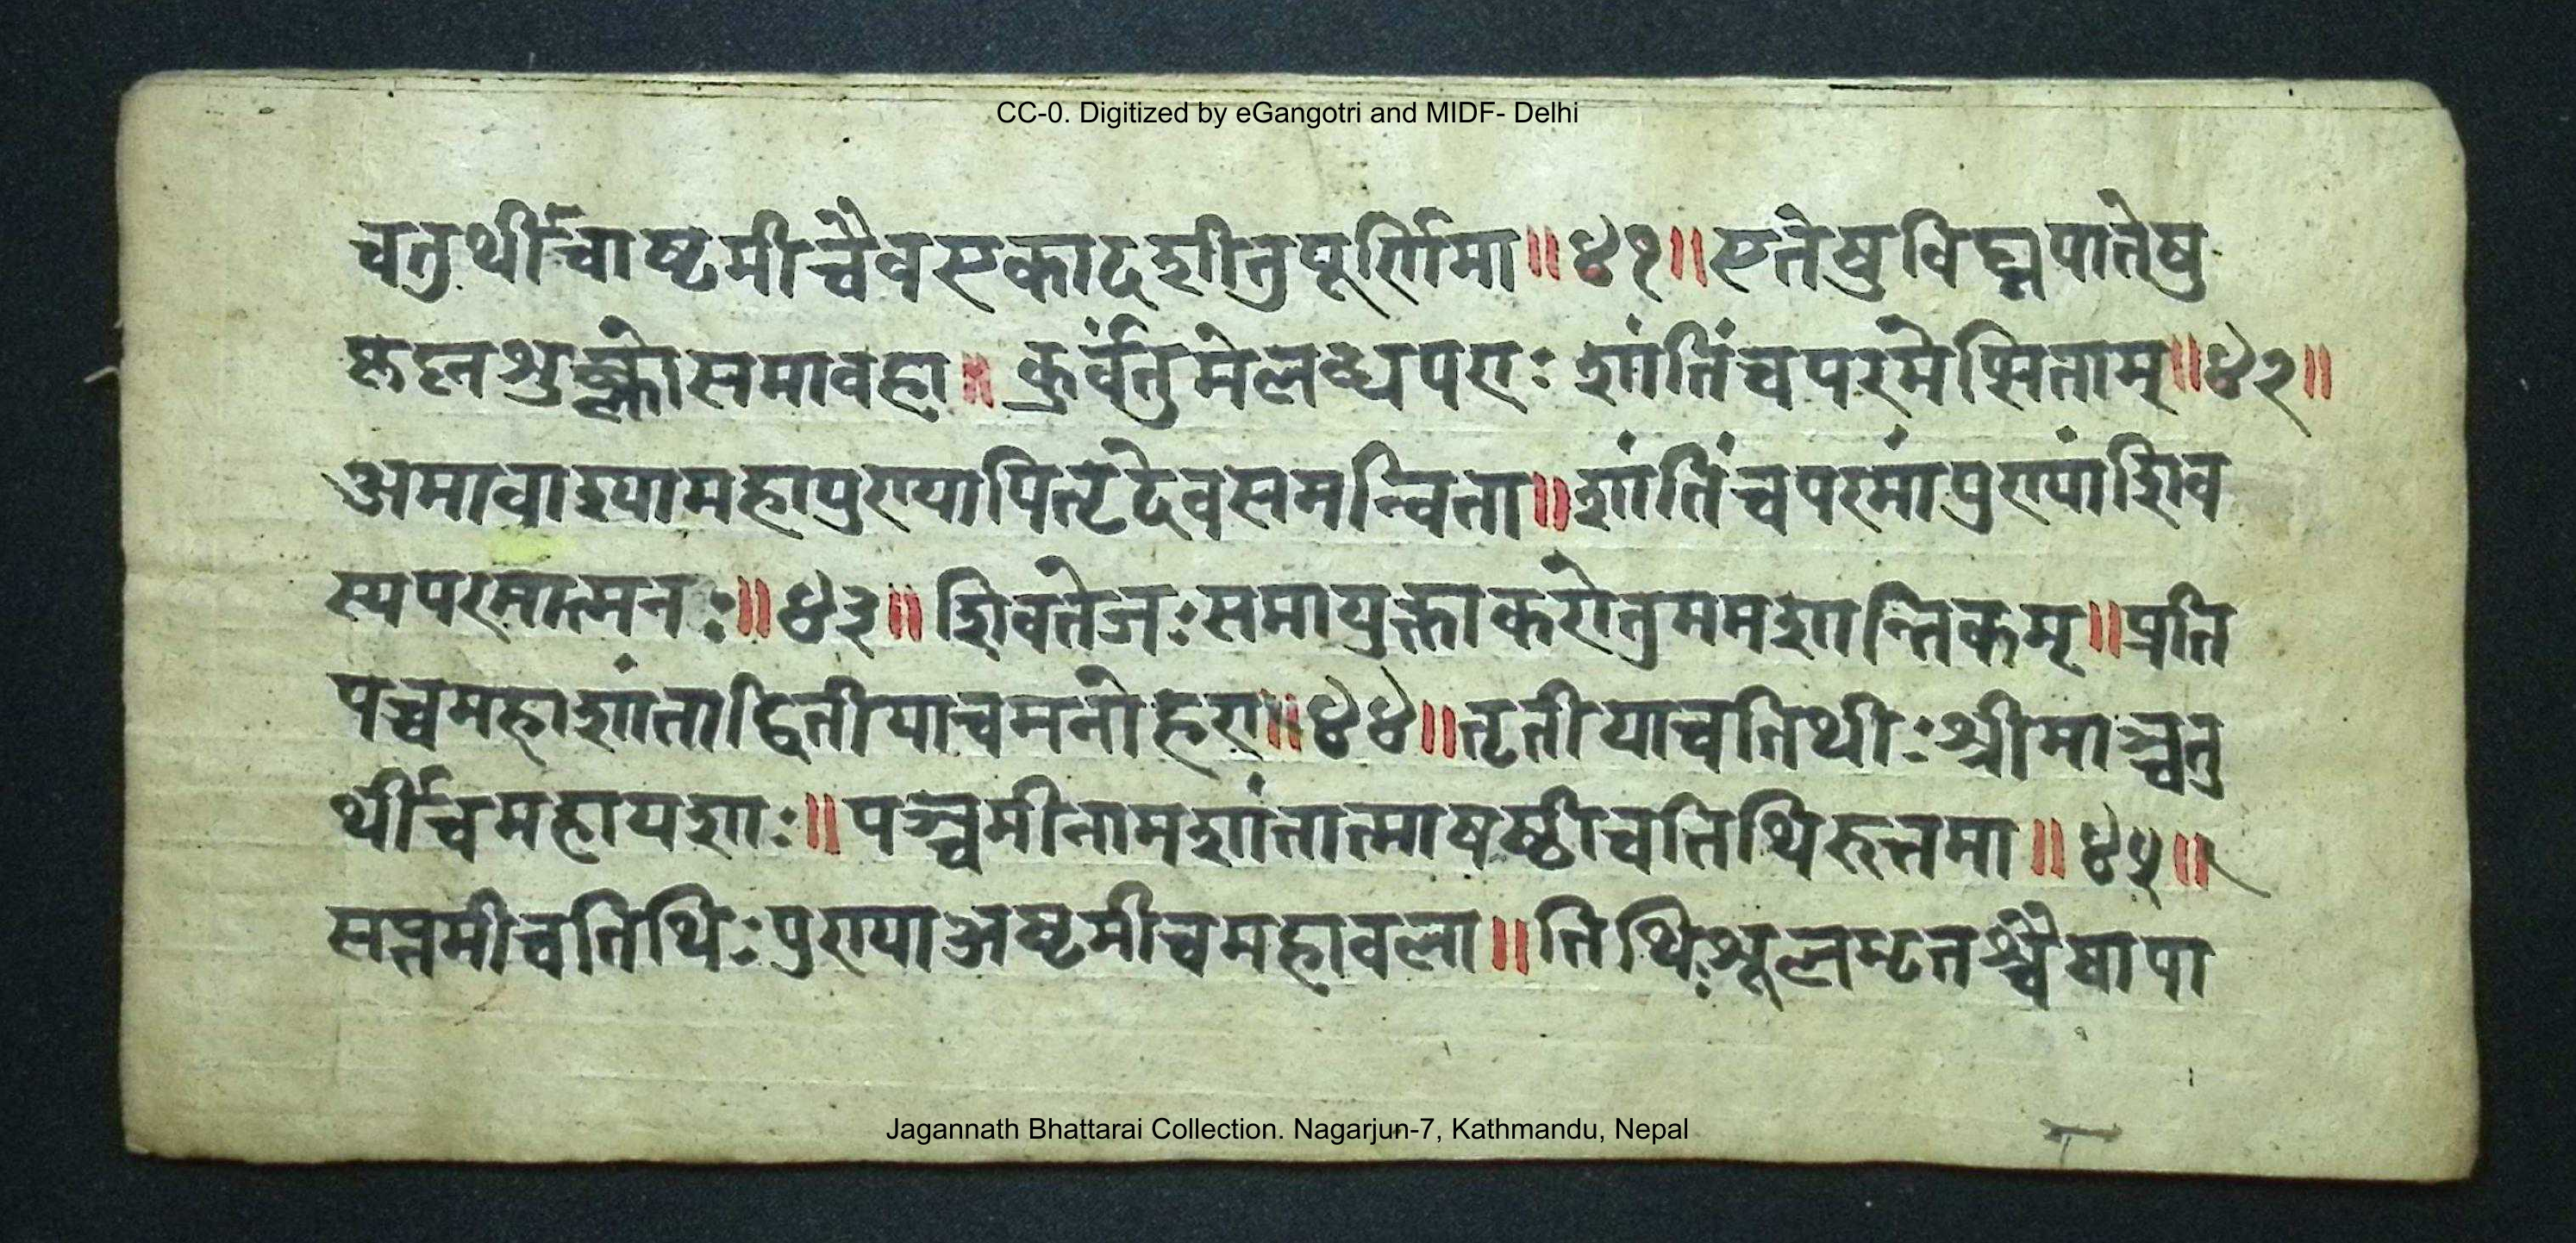 CC-0. Digitized by eGangotri and MIDF- Delhi
चतुर्थीचाष्टमीचैवएकादशीतुपूर्णिमा॥४१॥एतेषुविघ्नपातेषु
समावहा॥ कुर्वंतुमे शांतिंचपरमेप्सिताम्॥४२॥
अमावास्यामहापुण्यापितृदेवसमन्विता॥शांतिंचपरमांपुण्यांशिव
स्यपरमात्मनः॥४३॥शिवतेजःसमायुक्ताकरोतुममशान्तिकम्॥प्रति
पच्चमहाशांताद्वितीयाचमनोहरा॥४४॥तृतीयाचतिथीःश्रीमाञ्चतु
र्थीचमहायशाः॥पञ्चमीनामशांतात्माषष्ठीचतिथिरुत्तमा॥४५॥
सप्तमीचतिथिःपुण्याअष्टमीचमहावला॥तिथिःशूलमृतश्चैषापा
Jagannath Bhattarai Collection. Nagarjun-7, Kathmandu, Nepal